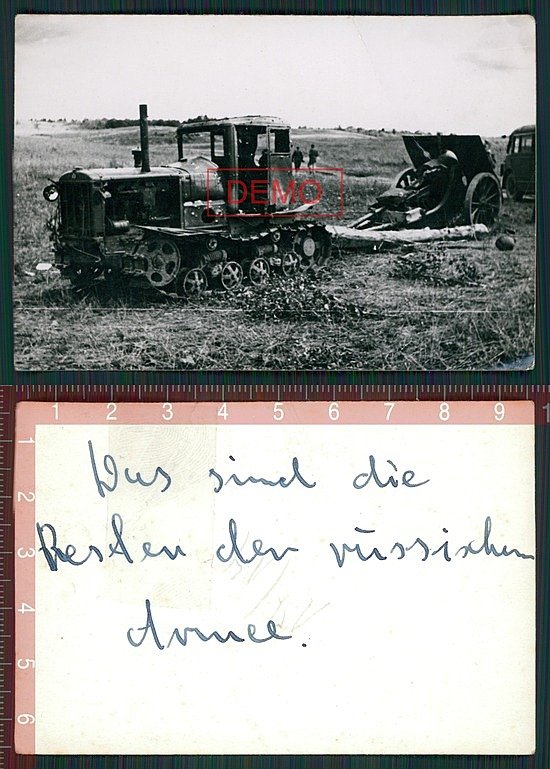 DEMO
1 2 3 4 5 6 7 8 9
1
2
3
4
5
6
Das sind die
Resten der russischen
Armee.